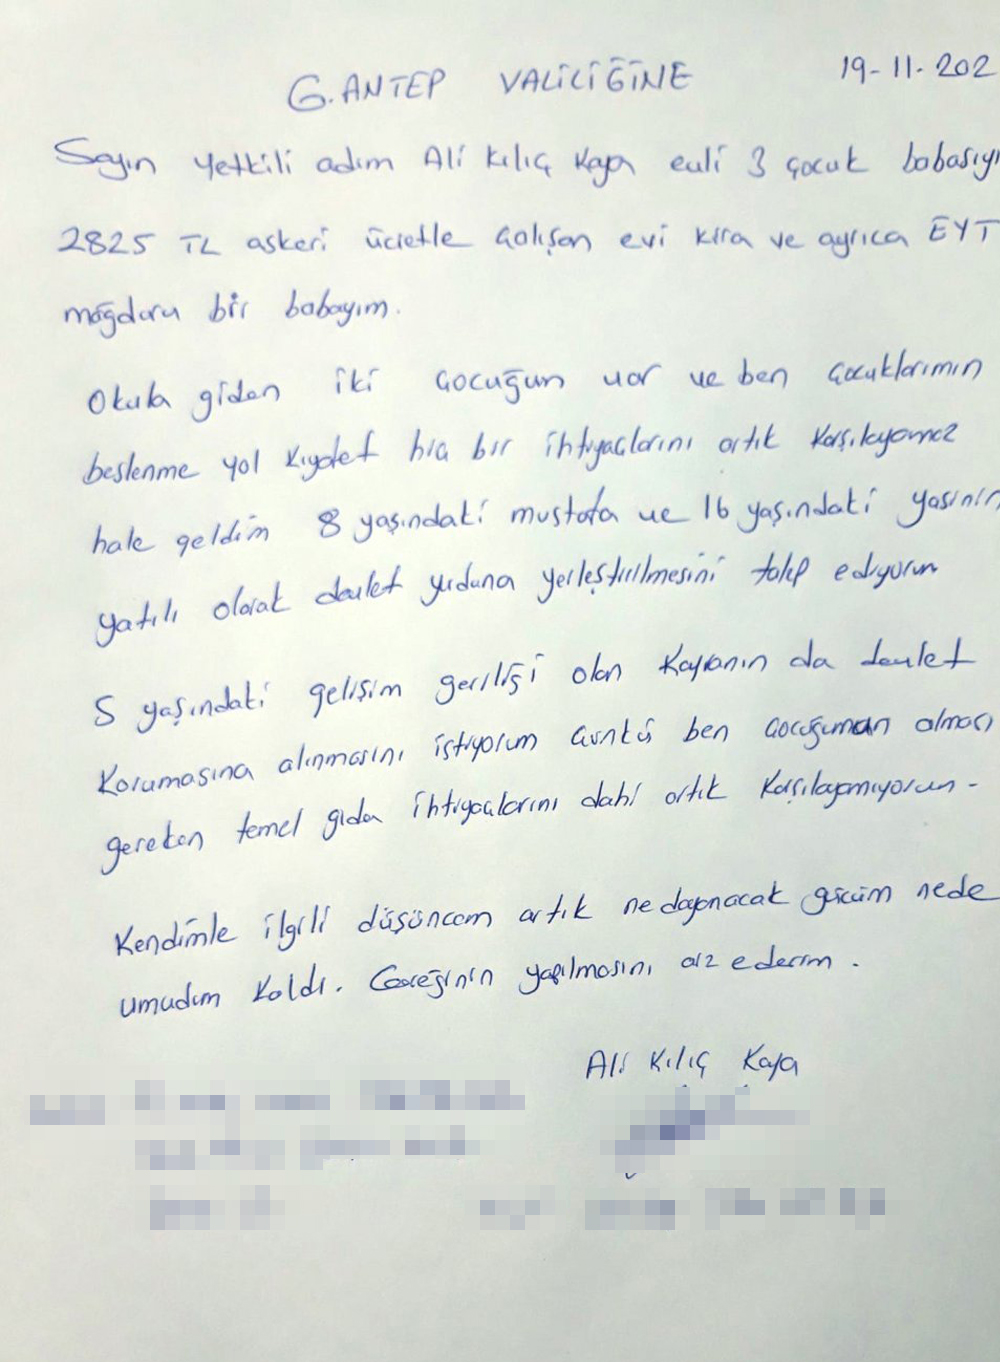 G.ANTEP VALİLİĞİNE 19-11-202
Sayın yetkili adım Ali Kılıç Kaya evli 3 çocuk babasıyı
2825 TL askeri ücretle çalışan evi kira ve ayrıca EYT
mağduru bir babayım.
Okula giden iki çocuğum var ve ben çocuklarımın
beslenme yol kıyafet hiç bir ihtiyaçlarını artık karşılayamaz
hale geldim 8 yaşındaki mustafa ve 16 yaşındaki yasinin
yatılı olarak devlet yurduna yerleştirilmesini talep ediyorum
5 yaşındaki gelişim geriliği olan Kayranın da devlet
korumasına alınmasını istiyorum çünkü ben çocuğuman alması
gereken temel gıda ihtiyaçlarını dahi artık karşılayamıyorum-
Kendimle ilgili düşüncem artık ne dayanacak gücüm nede
umudum kaldı. Gereğinin yapılmasını arz ederim.
Ali Kılıç Kaya